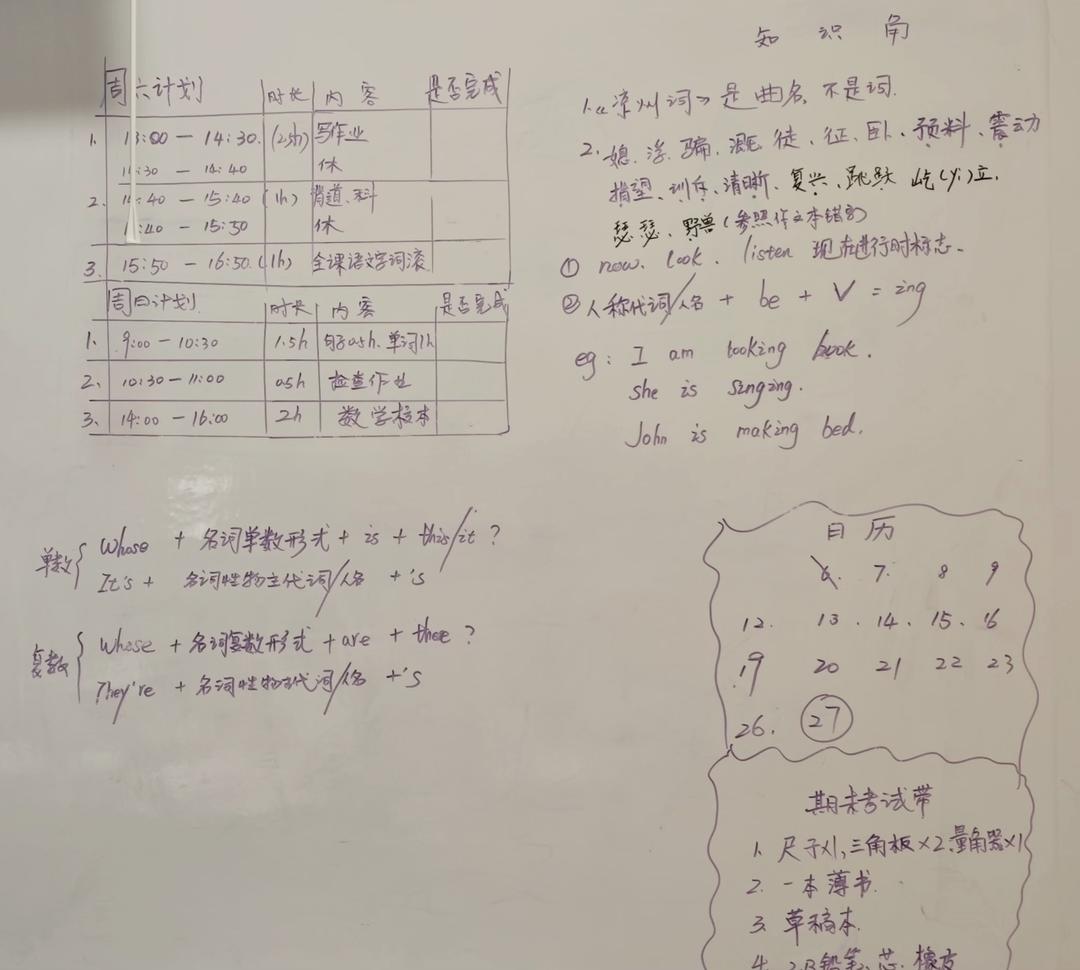 周六计划 时长 内容 是否完成
1. 13:00 — 14:30. (2.5h) 写作业
14:40 休
2. 14:40 — 15:40 (1h) 道、科
— 15:50 休
3. 15:50 — 16:50. (1h) 全课语文字词滚
周日计划 时长 内容 是否完成
1. 9:00 — 10:30 1.5h 0.5h. 单词1h
2. 10:30 — 11:00 0.5h 检查作业
3. 14:00 — 16:00 2h 数学校本
单数 { Whose + 名词单数形式 + is + this/it ?
It's + 名词性物主代词/人名 + 's
复数 { Whose + 名词复数形式 + are + thee ?
They're + 名词性物主代词/人名 + 's
知识角
1. 《凉州词》是曲名, 不是词.
2. 媳、浮、骗、溉、徒、征、卧、预料、震动
指望、训斥、清晰、复兴、跳跃 屹(yi)立、
瑟瑟、野兽(参照作文本错字)
① now、look、listen 现在进行时标志.
② 人称代词/人名 + be + V = ing
eg: I am looking book.
she is singing.
John is making bed.
日历
6. 7. 8 9
12. 13. 14. 15. 16
19 20 21 22 23
26. 27
期末考试带
1. 尺子×1, 三角板×2, 量角器×1
2. 一本薄书.
3. 草稿本.
4. 2B铅笔、芯、橡皮